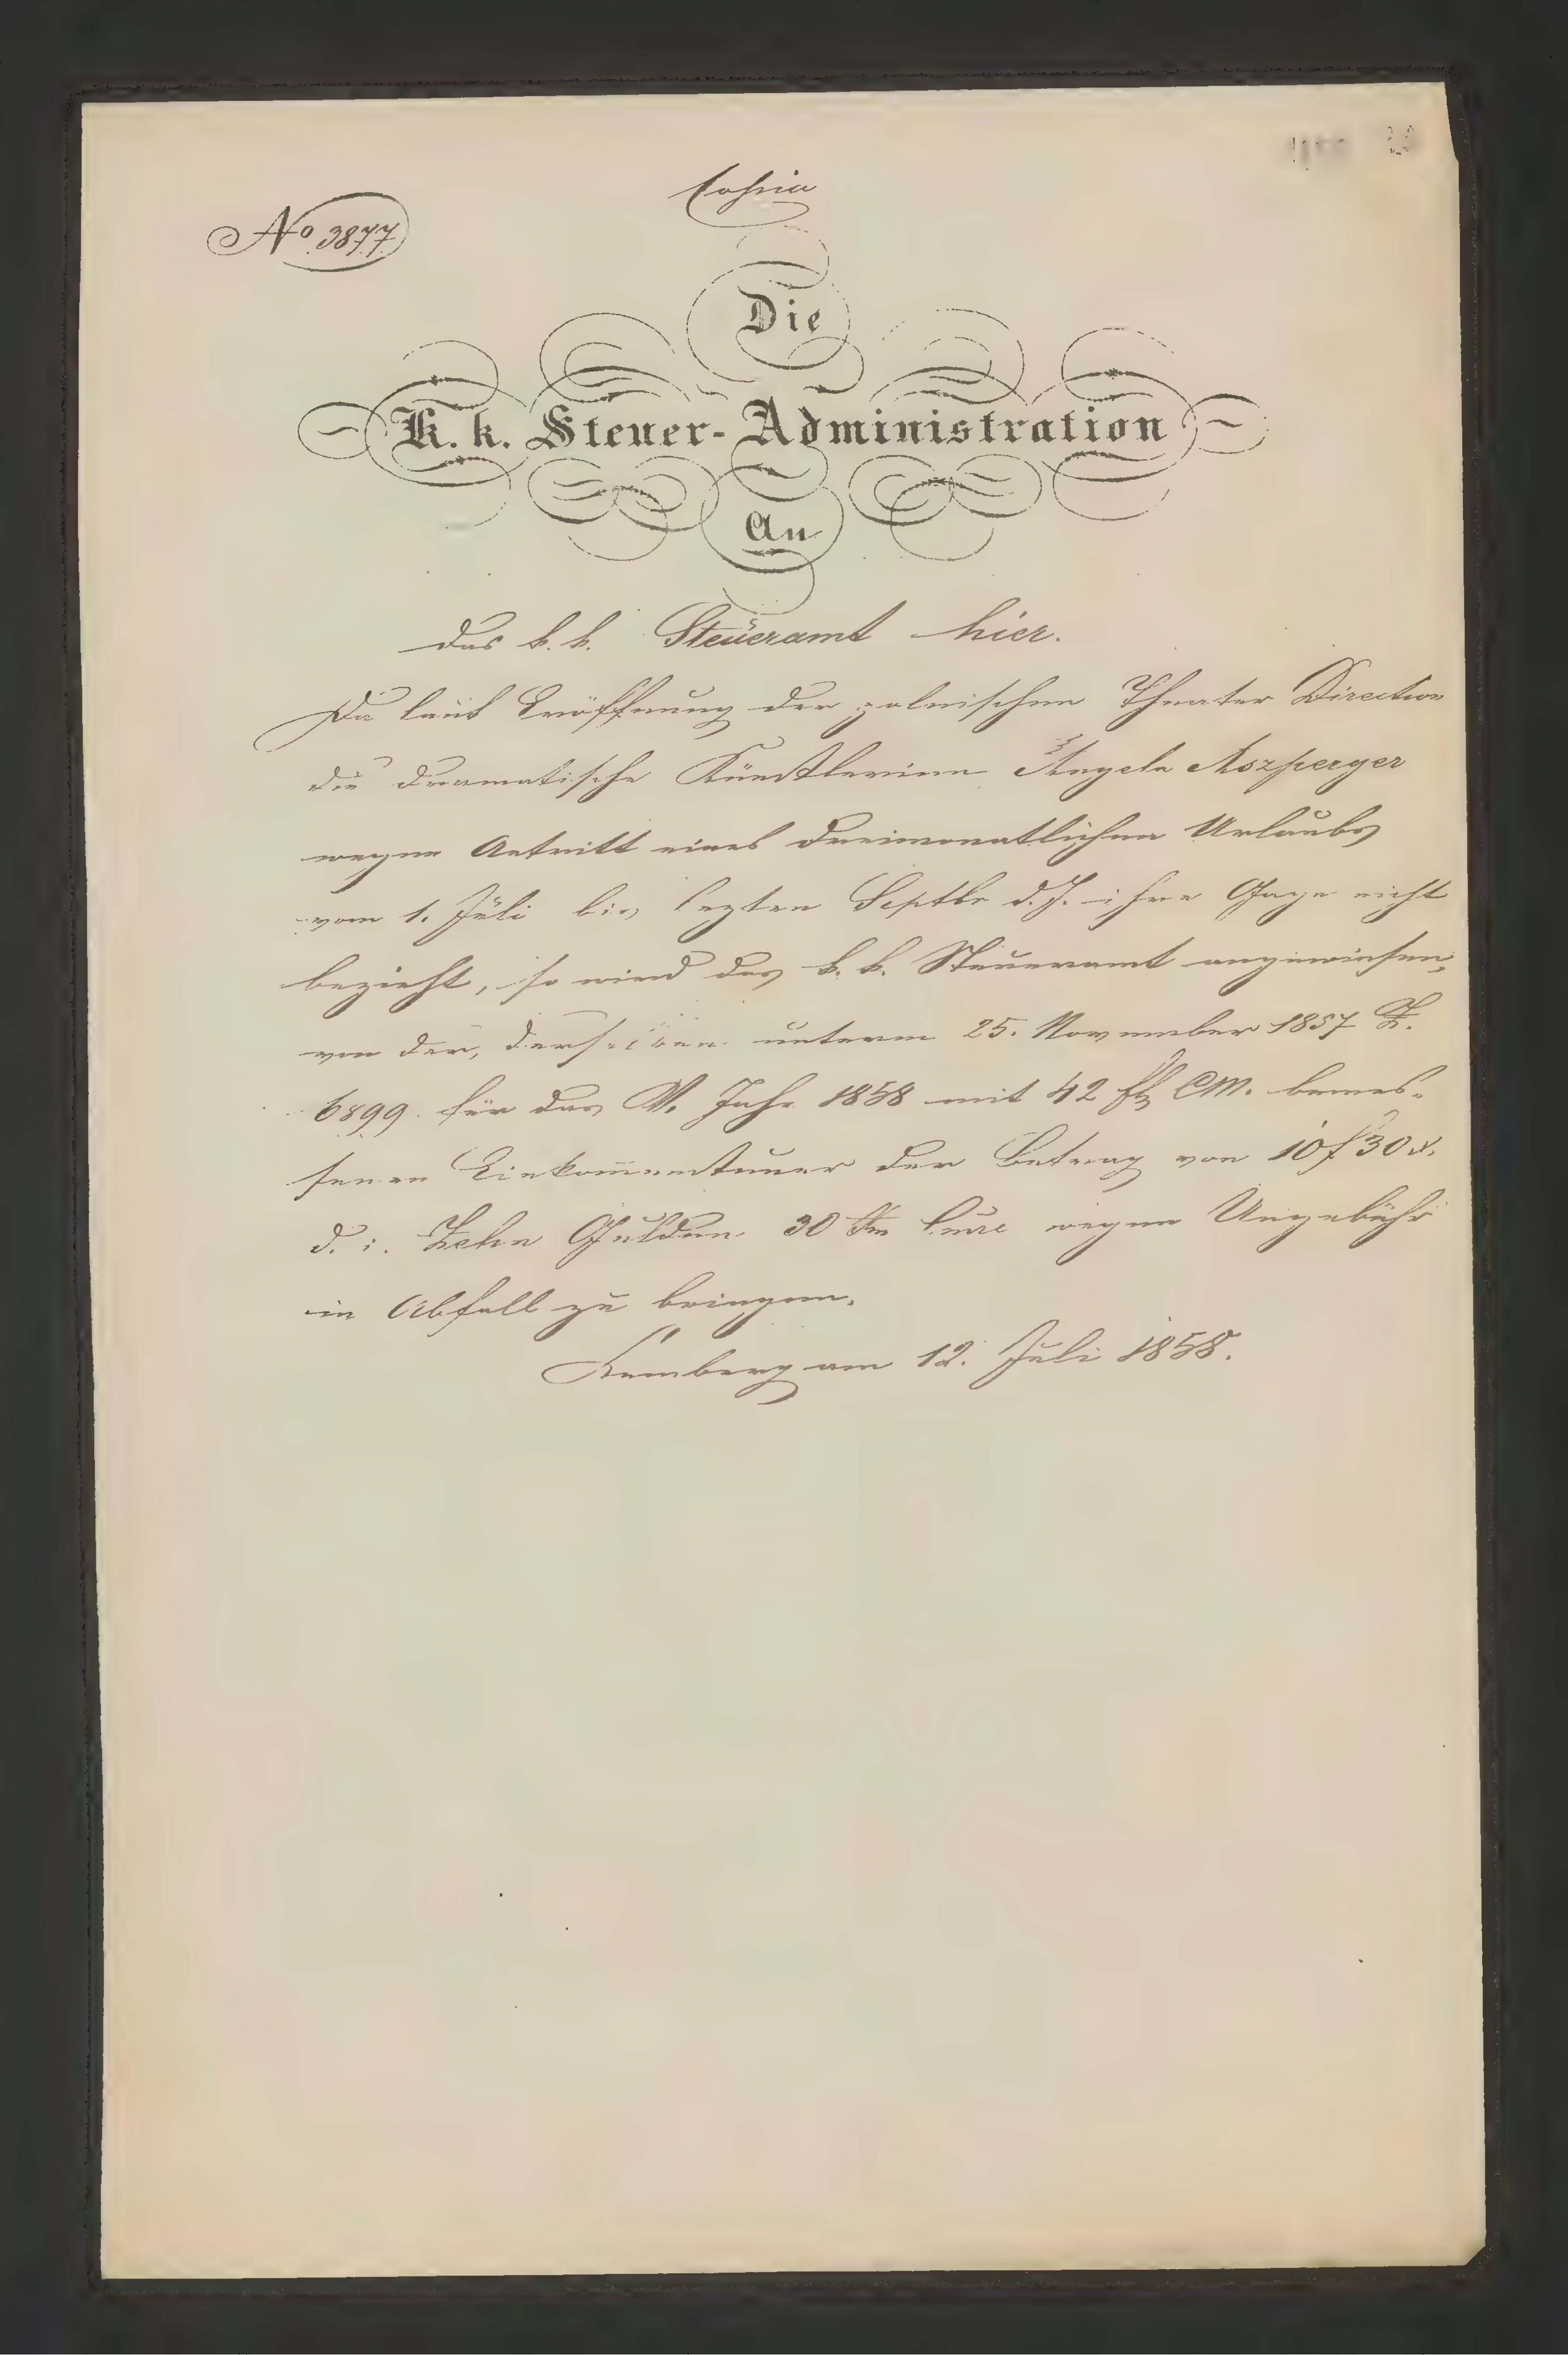 Copia
No 3877
Die
K. k. Steuer-Administration
An
das k. k. Steueramt hier.
Da laut Eröffnung der polnischen Theater Direction
die dramatische Künstlerinn Angela Aszperger
wegen Antritt eines dreimonatlichen Urlaubs
vom 1. Juli bis lezten Septbr d. J. ihre Gage nicht
bezieht, so wird das k. k. Steueramt angewiesen,
von der, derselben unterm 25. November 1857 Z.
6899 für das V. Jahr 1858 mit 42 fl CM. bemes-
senen Einkommensteuer der Betrag von 10 f 30 x.
d. i. Zehn Gulden 30 wegen Ungebühr
in Abfall zu bringen.
Lemberg am 12. Juli 1858.